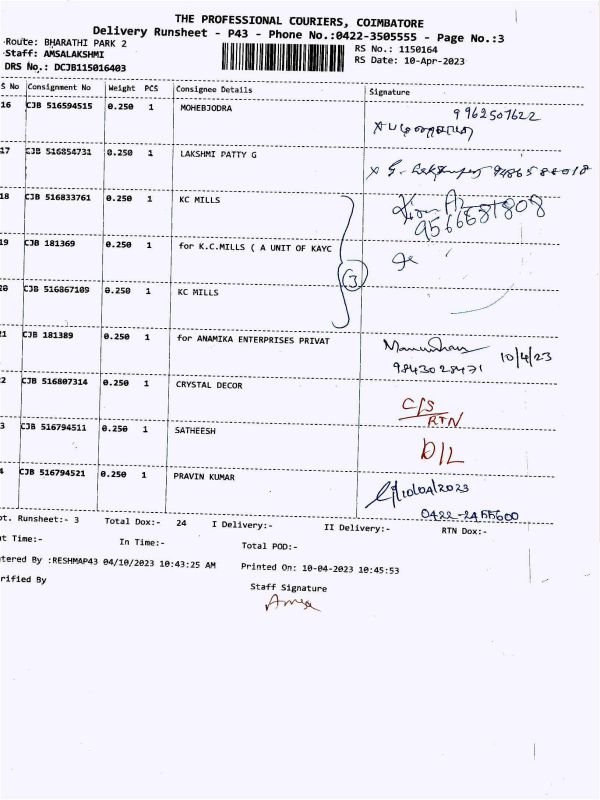 THE PROFESSIONAL COURIERS, COIMBATORE
Delivery Runsheet - P43 - Phone No.:0422-3505555 - Page No.:3
Route: BHARATHI PARK 2
Staff: AMSALAKSHMI
DRS No.: DCJB115016403
RS No.: 1150164
RS Date: 10-Apr-2023
S No Consignment No Weight PCS Consignee Details Signature
16 CJB 516594515 0.250 1 MOHEBJODRA 9962507622
17 CJB 516854731 0.250 1 LAKSHMI PATTY G
18 CJB 516833761 0.250 1 KC MILLS
9566681808
19 CJB 181369 0.250 1 for K.C.MILLS ( A UNIT OF KAYC
3
20 CJB 516867109 0.250 1 KC MILLS
1 CJB 181389 0.250 1 for ANAMIKA ENTERPRISES PRIVAT
10/4/23
9843028471
2 CJB 516807314 0.250 1 CRYSTAL DECOR C/S
RTN
3 CJB 516794511 0.250 1 SATHEESH D/L
4 CJB 516794521 0.250 1 PRAVIN KUMAR 10/04/2023
0422-2455600
ot. Runsheet:- 3 Total Dox:- 24 I Delivery:- II Delivery:- RTN Dox:-
ut Time:- In Time:- Total POD:-
tered By :RESHMAP43 04/10/2023 10:43:25 AM Printed On: 10-04-2023 10:45:53
rified By Staff Signature